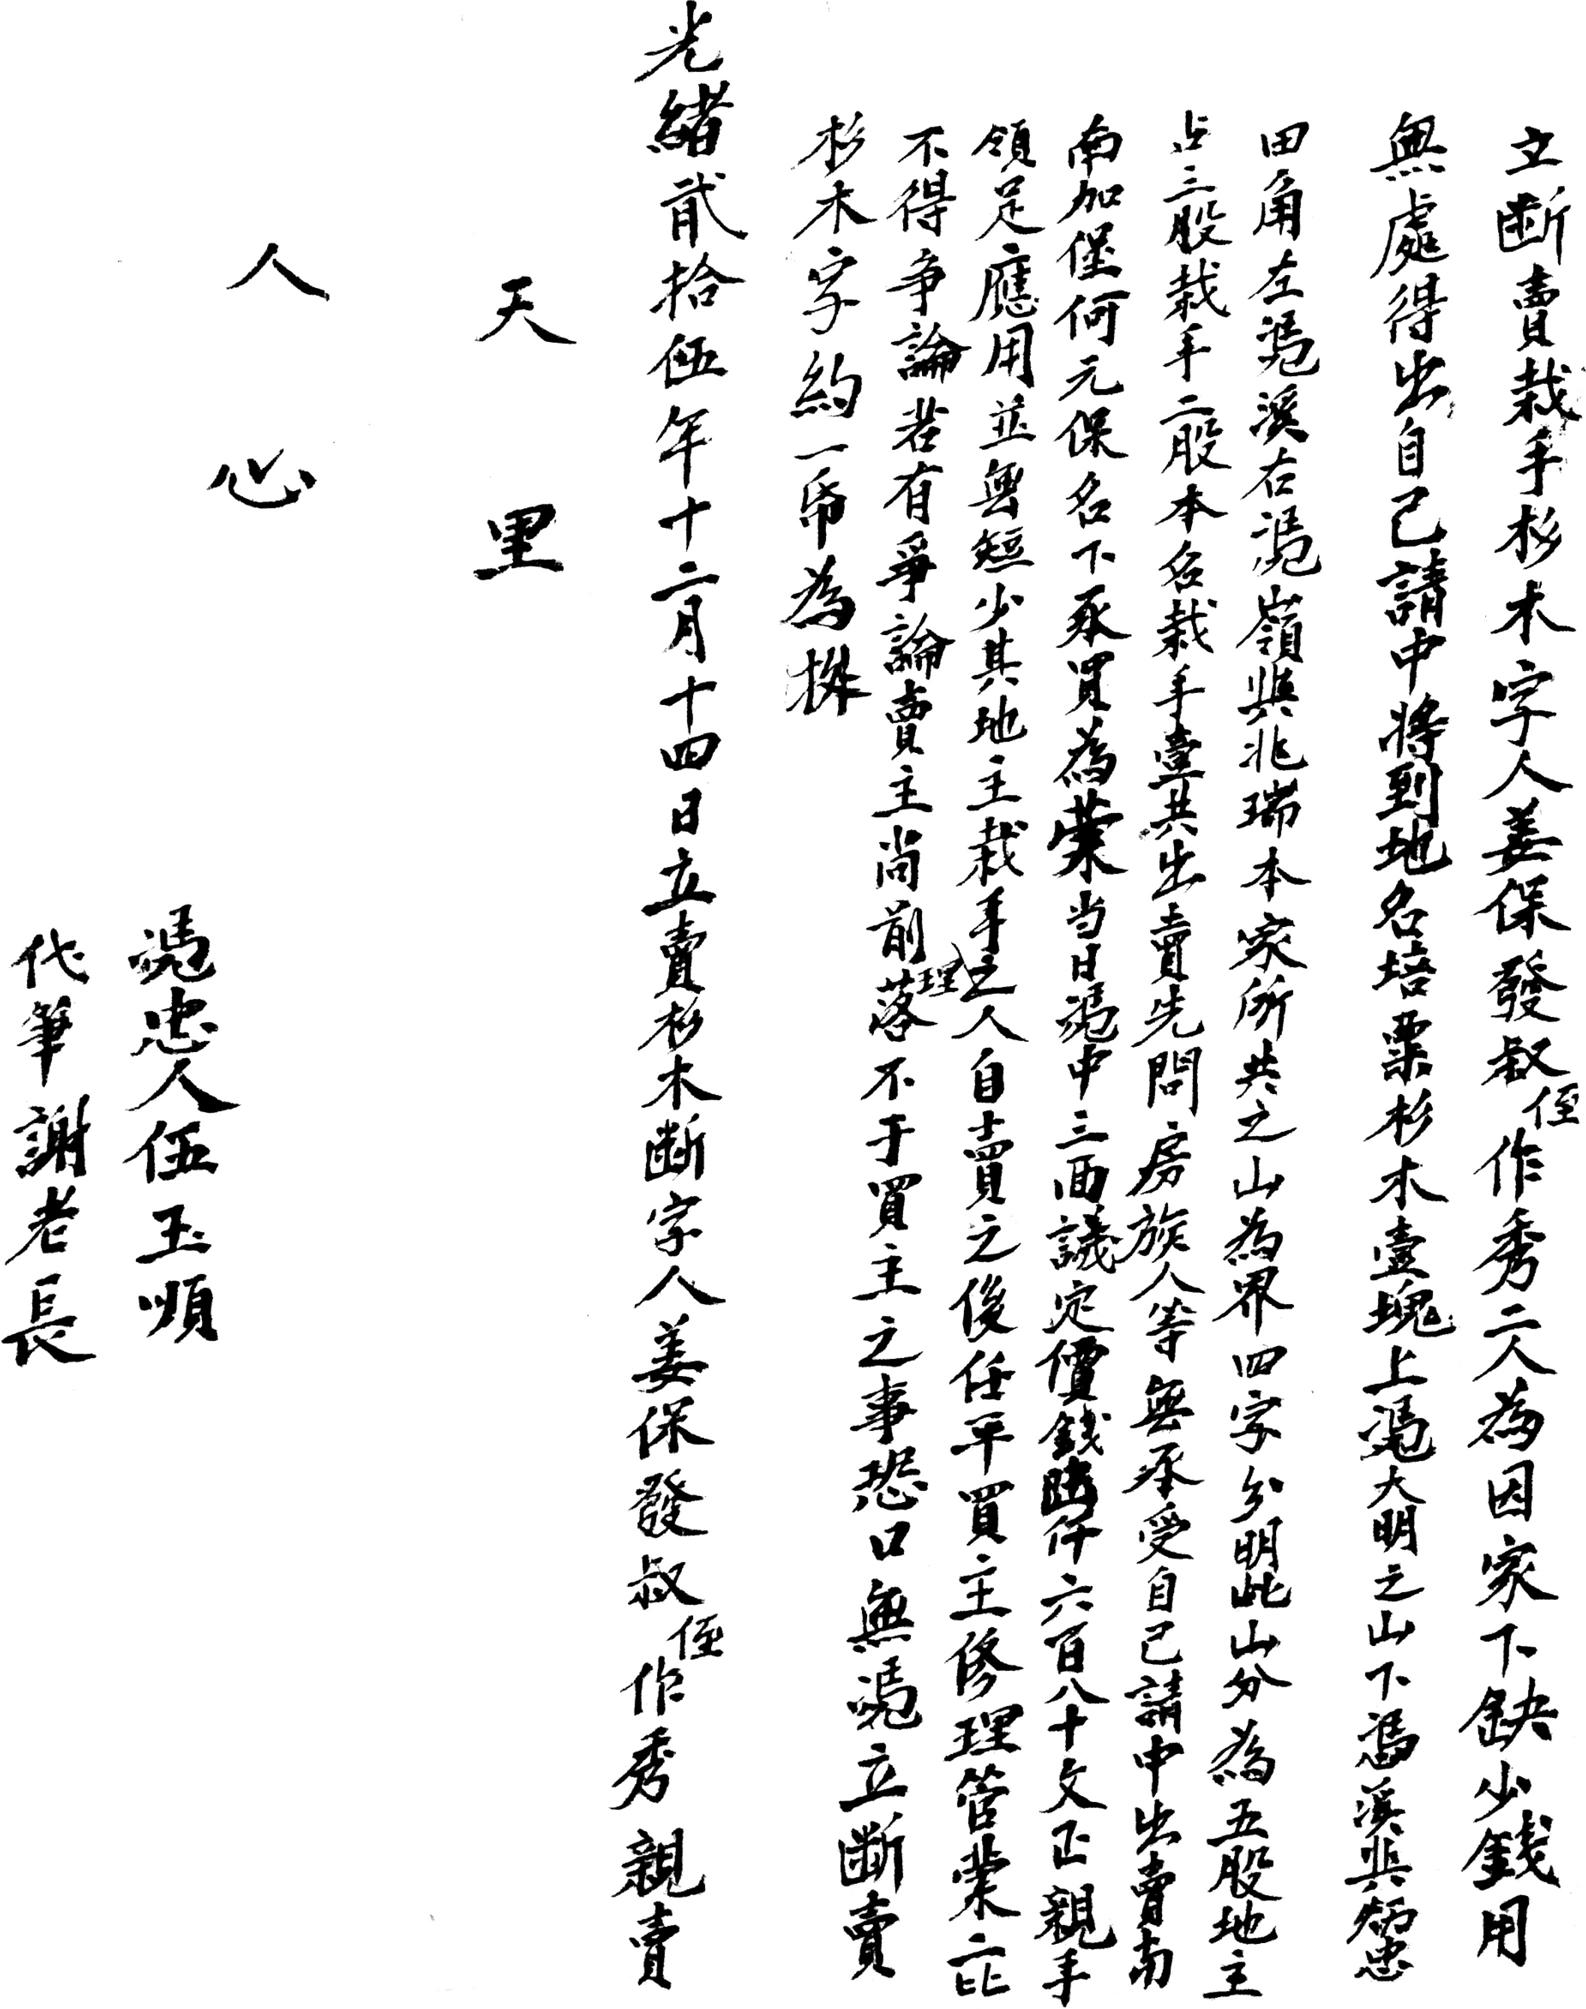 立断賣栽手杉木字人姜保發叔侄作秀二人為因家下缺少錢用
無處得出自己請中將到地名培粟杉木壹塊上馮大明之山下馮溪與炳忠
田角左馮溪右馮嶺與兆瑞本家所共之山為界四字分明此山分為五股地主
占三股栽手二股本名栽手壹共出賣先問房族人等無承受自己請中出賣南
南加堡何元保名下承買為業当日馮中三面議定價錢陸仟六百八十文正親手
領足應用並無短少其地主栽手之人自賣之後任平買主修理管業二比
不得争論若有爭論賣主尚前理落不于買主之事恐口無憑立断賣
杉木字約一帋為㨿
光緒貳拾伍年十二月十四日立賣杉木断字人姜保發叔侄作秀親賣
天里
人心
憑忠人伍玉順
代筆謝老長